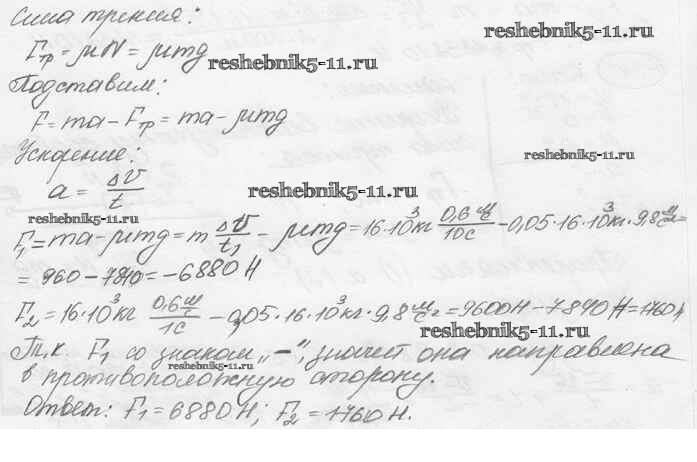 Сила трения:
Fтр = μN = μmg
reshebnik5-11.ru
reshebnik5-11.ru
Подставим:
F = ma - Fтр = ma - μmg
Ускорение:
reshebnik5-11.ru
a = ΔV/t
reshebnik5-11.ru
reshebnik5-11.ru
F₁ = ma - μmg = m ΔV/t₁ - μmg = 16·10³кг 0,6 м/с / 10с - 0,05·16·10³кг·9,8 м/с² =
= 960 - 7840 = -6880 Н
F₂ = 16·10³кг 0,6 м/с / 1с - 0,05·16·10³кг·9,8 м/с² = 9600Н - 7840 Н = 1760Н
reshebnik5-11.ru
Т.к. F₁ со знаком „-", значит она направлена
reshebnik5-11.ru
в противоположную сторону.
Ответ: F₁ = 6880 Н; F₂ = 1760 Н.